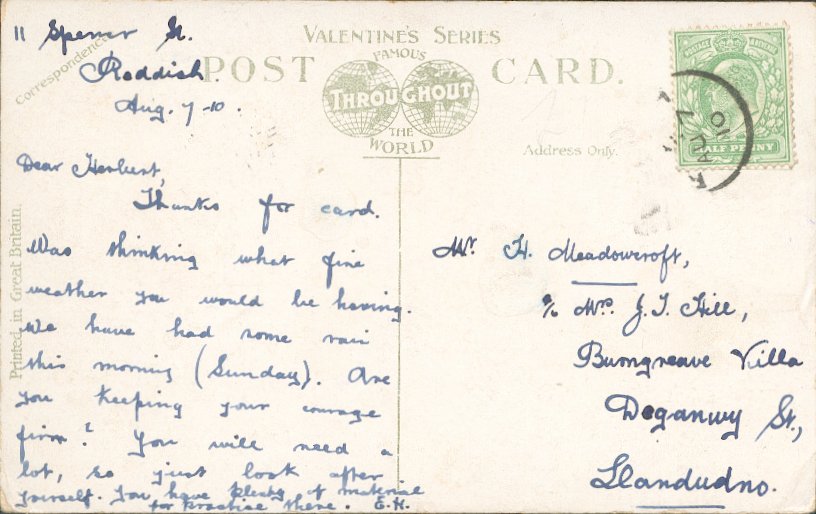 11 Spencer St.
Reddish.
Aug. 7-10.
Correspondence.
VALENTINE'S SERIES
POST CARD.
FAMOUS
THROUGHOUT
THE
WORLD
Address Only.
POSTAGE REVENUE
HALF PENNY
AU 7
10
Printed in Great Britain.
Dear Herbert,
Thanks for card.
Was thinking what fine
weather you would be having.
We have had some rain
this morning (Sunday). Are
you keeping your courage
firm? You will need a
lot, so just look after
yourself. You have plenty of material
for practise there. E.H.
Mr. H. Meadowcroft,
c/o Mrs. J. T. Hill,
Burngreave Villa
Deganwy St.,
Llandudno.